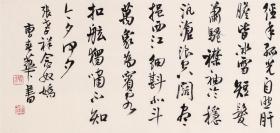 经年孤光自照肝
胆皆冰雪短发
萧骚襟袖冷稳
泛沧浪空阔尽
挹西江细斟北斗
万象为宾客
扣舷独啸不知
今夕何夕
张孝祥念奴娇